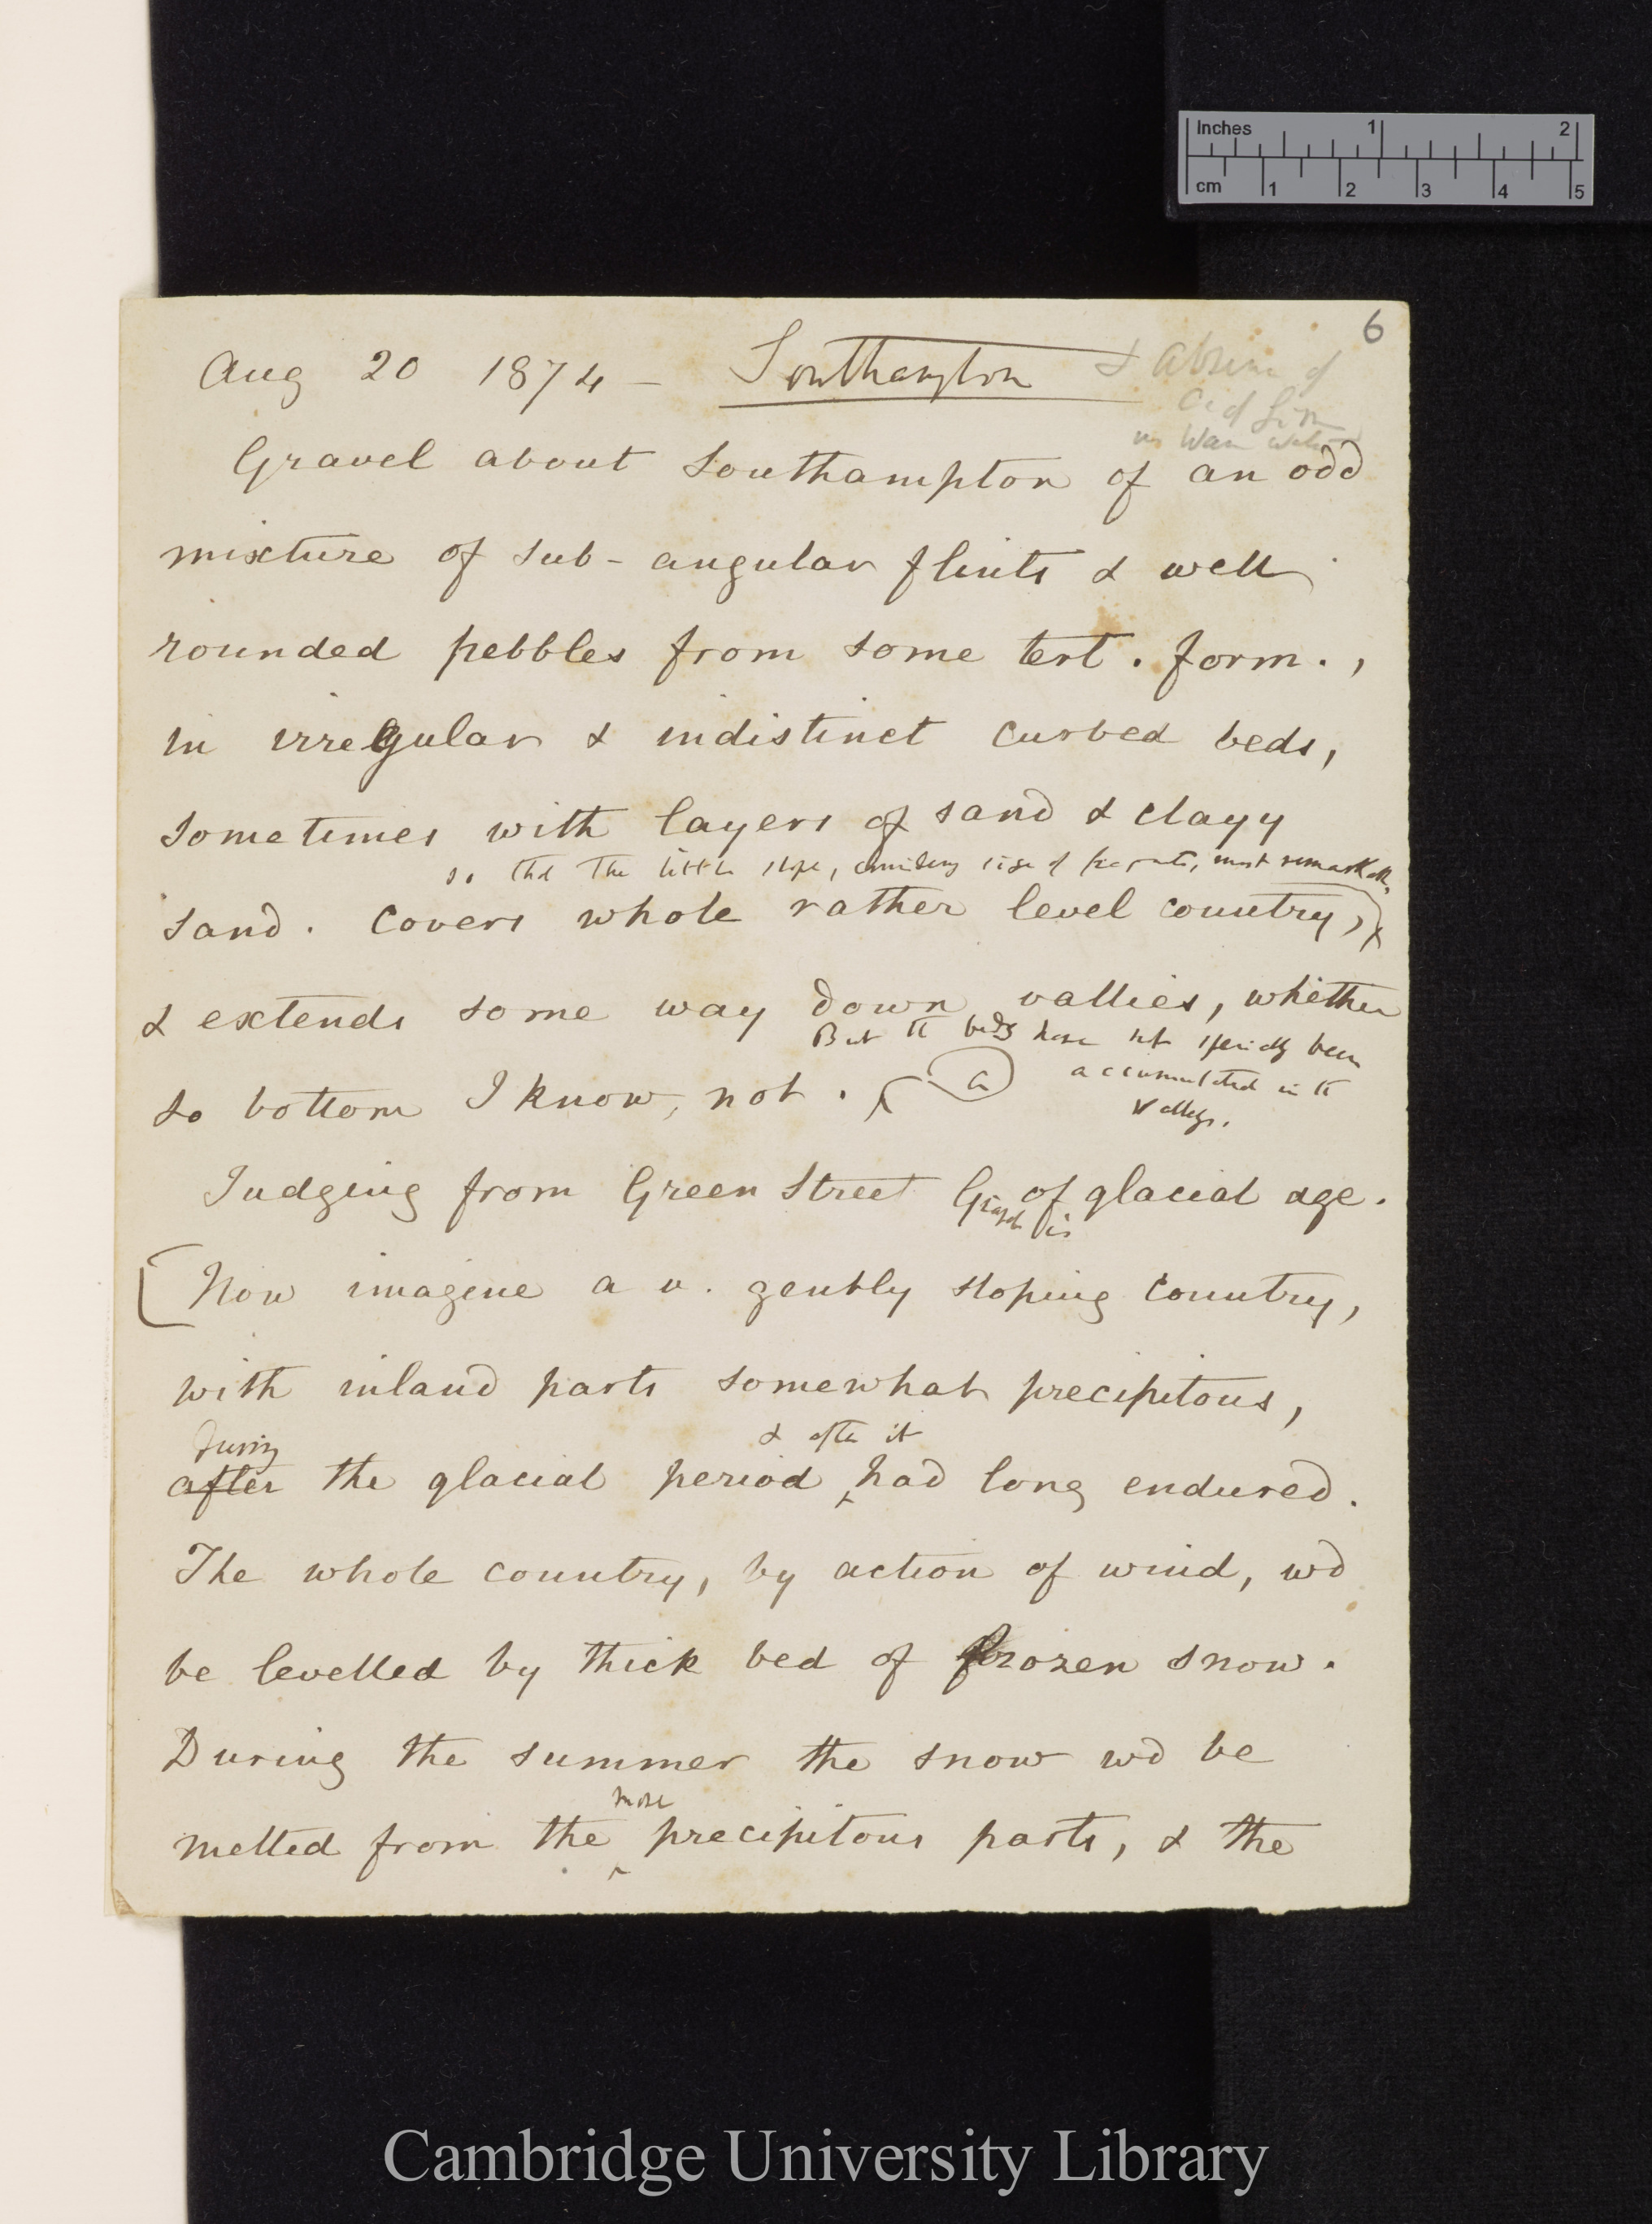 Inches 1 2
cm 1 2 3 4 5
6
Aug 20 1874 — Southampton & absence of
Gravel about Southampton of an odd
mixture of sub-angular flints & well
rounded pebbles from some tert. form.,
in irregular & indistinct curved beds,
sometimes with layers of sand & clayy
so that the little slope, considering size of fragments, most remarkable
sand. Covers whole rather level country,
& extends some way down vallies, whether
But the beds have not specially been
accumulated in the
valleys.
to bottom I know, not. (a)
Judging from Green Street Gravel is of glacial age.
[Now imagine a v. gently sloping country,
with inland parts somewhat precipitous,
during & after it
after the glacial period had long endured.
The whole country, by action of wind, wd
be levelled by thick bed of frozen snow.
During the summer the snow wd be
more
melted from the precipitous parts, & the
Cambridge University Library